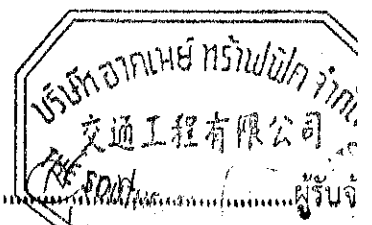 บริษัท อาคเนย์ ทร้าฟฟิค จำกัด
交通工程有限公司
ผู้รับจ้